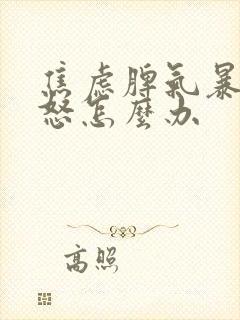 焦虑脾氣暴
怒怎麽办
高照